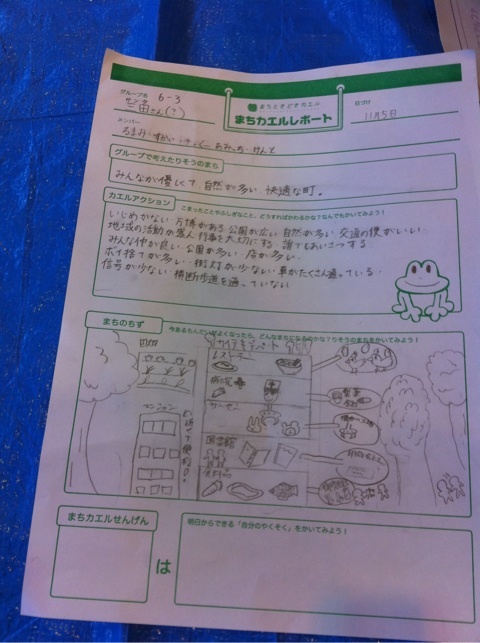 グループ名 6-3
三田さん(?)
まちときどきカエル
まちカエルレポート
日づけ 11月5日
メンバー
グループで考えたりそうのまち
みんなが優しくて 自然が多い 快適な町。
カエルアクション
こまったことやふしぎなこと、どうすればかわるかな?なんでもかいてみよう!
いじめがない 万博がある 公園が広い 自然が多い 交通の便がいい
地域の活動が盛ん 行事を大切にする 誰でもあいさつする
みんな仲が良い 公園が多い 店が多い
ポイ捨てが多い 街灯が少ない 車がたくさん通っている
信号が少ない 横断歩道を通っていない
まちのちず
今あるもんだいがよくなったら、どんなまちになるのかな?りそうのまちをかいてみよう!
レストラン
図書館
マンション
まちカエルせんげん
は
明日からできる「自分のやくそく」をかいてみよう!